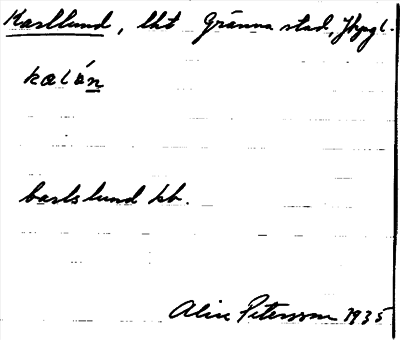 Karllund, lht Gränna stad, Jkpgl.
kalún
barlslund kb.
Alice Petersson 1935